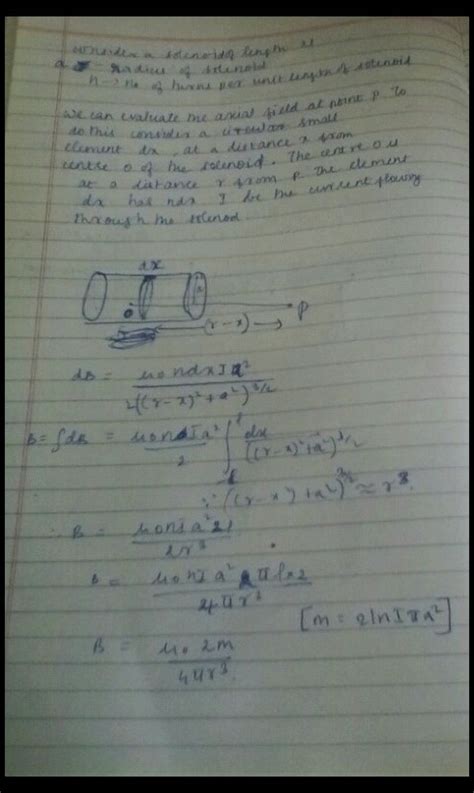 consider a solenoid of length 2l
a - radius of solenoid
n → no of turns per unit length of solenoid
we can evaluate the axial field at point p. To
do this consider a circular small
element dx, at a distance x from
centre O of the solenoid. The centre O is
at a distance r from P. The element
dx has ndx I be the current flowing
through the solenoid
dx
a
O
(r-x) → P
dB = μondxIa²
2((r-x)²+a²)^3/2
B = ∫dB = μonIa² ∫ dx
2 -l l ((r-x)²+a²)^3/2
∵ ((r-x)²+a²)^3/2 ≈ r³
∴ B = μonIa² 2l
2r³
B = μonIa² 2πl×2
4πr³
[m = 2lnIπa²]
B = μo 2m
4πr³